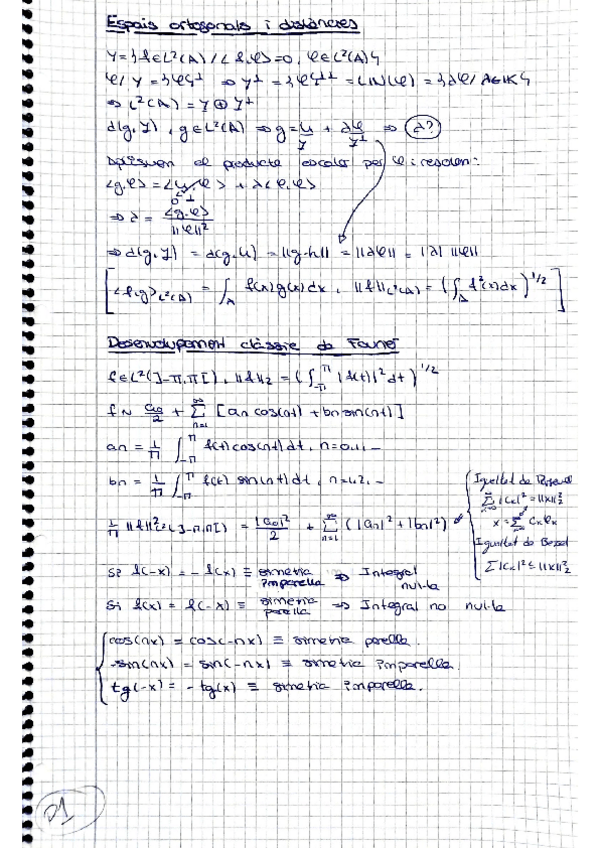 Espais ortogonals i distàncies
Y = {f∈L²(A) / <f,φ> = 0, φ∈L²(A)}
φ / Y = {φ}⊥ ⇒ Y⊥ = {φ}⊥⊥ = LIN(φ) = {λφ / λ∈K}
⇒ L²(A) = Y ⊕ Y⊥
d(g,Y), g∈L²(A) ⇒ g = u + λφ ⇒ λ?
Y Y⊥
Apliquem el producte escalar per φ i resolem:
<g,φ> = <u,φ> + λ<φ,φ>
0 ⊥
⇒ λ = <g,φ> / ||φ||²
⇒ d(g,Y) = d(g,u) = ||g-u|| = ||λφ|| = |λ| ||φ||
[<f,g>L²(A) = ∫A f(x)g(x)dx, ||f||L²(A) = (∫A f²(x)dx)^1/2]
Desenvolupament clàssic de Fourier
f∈L²(]-π,π[), ||f||₂ = (∫-π^π |f(t)|² dt)^1/2
f ~ a₀/2 + Σn=1^∞ [an cos(nt) + bn sin(nt)]
an = 1/π ∫-π^π f(t) cos(nt) dt, n=0,1,...
bn = 1/π ∫-π^π f(t) sin(nt) dt, n=1,2,...
1/π ||f||²L²(]-π,π[) = |a₀|²/2 + Σn=1^∞ (|an|² + |bn|²)
Igualtat de Parseval
Σ |Cn|² = ||x||²₂
x = Σ Cn φn
Igualtat de Bessel
Σ|Cn|² ≤ ||x||²₂
Si f(-x) = -f(x) ≡ simetria imparella ⇒ Integral nul·la
Si f(x) = f(-x) ≡ simetria parella ⇒ Integral no nul·la
cos(nx) = cos(-nx) ≡ simetria parella.
-sin(nx) = sin(-nx) ≡ simetria imparella.
tg(-x) = -tg(x) ≡ simetria imparella.
01